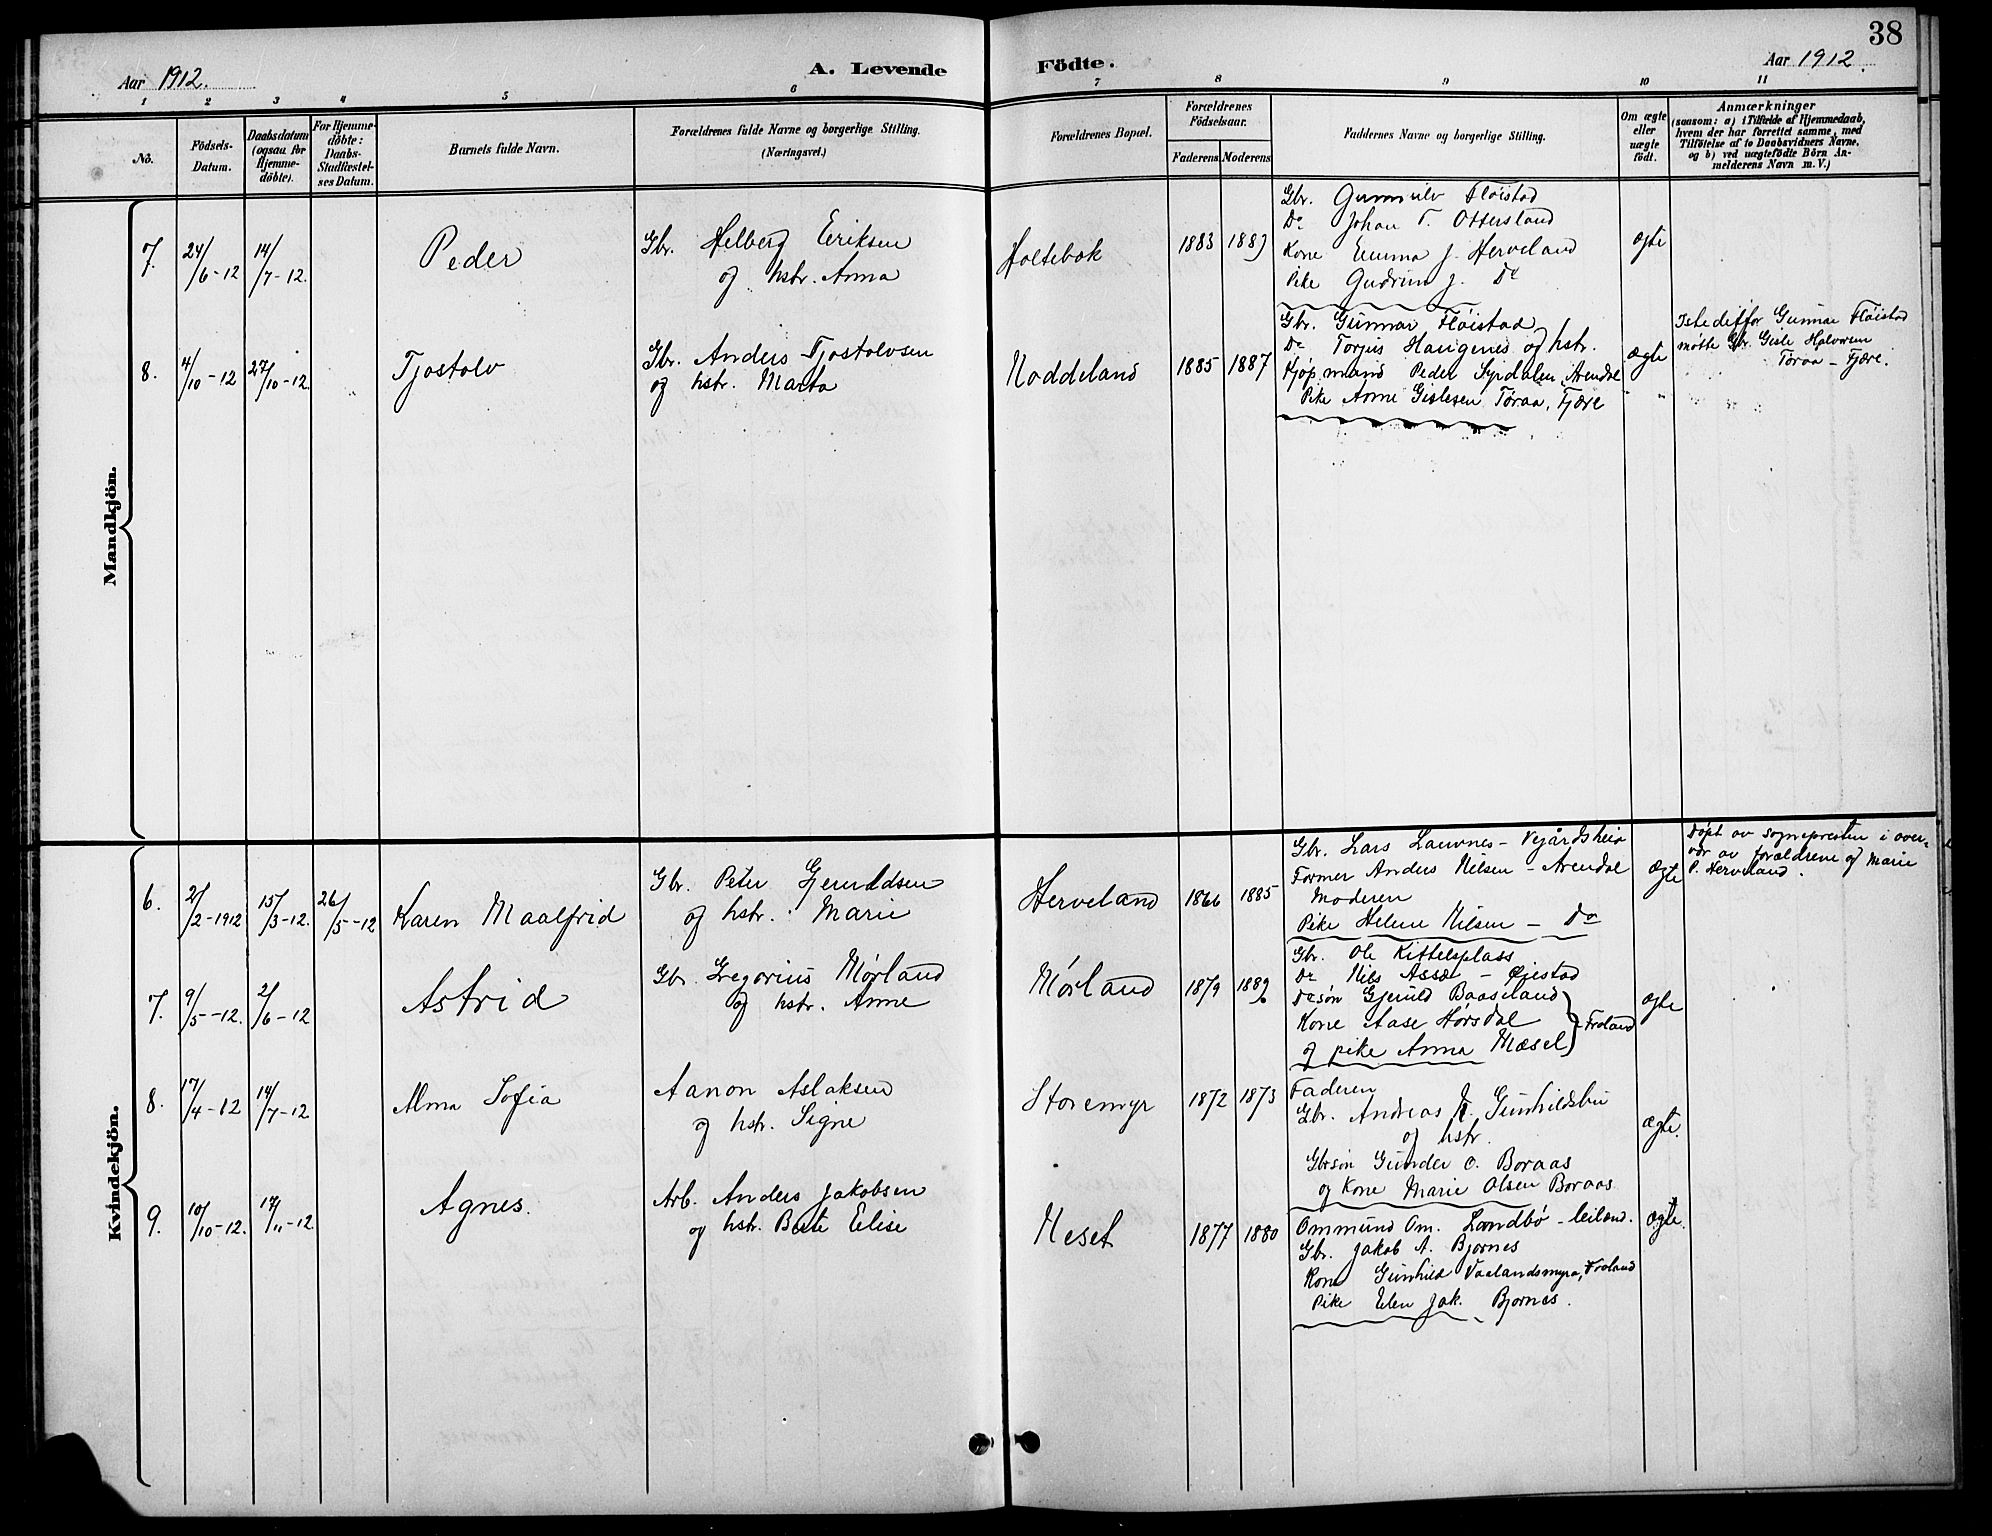 38
Aar 1912.
A. Levende Födte.
Aar 1912.
1 2 3 4 5 6 7 8 9 10 11
No.
Födsels-
Datum.
Daabsdatum
(ogsaa for
Hjemme-
döbte).
For Hjemme-
döbte:
Daabs-
Stadfæstel-
ses Datum.
Barnets fulde Navn.
Forældrenes fulde Navne og borgerlige Stilling.
(Næringsvei.)
Forældrenes Bopæl.
Forældrenes
Födselsaar.
Faderens Moderens
Faddernes Navne og borgerlige Stilling.
Om ægte
eller
uægte
födt.
Anmærkninger
(saasom: a) i Tilfælde af Hjemmedaab,
hvem der har forrettet samme, med
Tilföielse af to Daabsvidners Navne,
og b) ved uægtefödte Börn An-
melderens Navn m. V.)
Mandkjön.
7. 24/6-12 14/7-12. Peder
Gbr. Helberg Eeriksen
og hstr. Anna
Holtebok 1883 1889
Gbr. Gunnulv Fløistad
Do Johan T. Ottersland
Kone Emma J. Herveland
Pike Gudrun J. Do
ægte
8. 4/10-12 27/10-12. Tjostolv
Gbr. Anders Tjostolvsen
og hstr. Marta
Noddeland 1885 1887
Gbr. Gunnar Fløistad
Do Torjus Haugenes og hstr.
Kjøpmand Peder Syrdalen, Arendal
Pike Anne Gislesen Tøraa, Fjære
ægte
Istedetfor Gunnar Fløistad
møtte Gbr. Gisle Halvorsen
Tøraa - Fjære.
Kvindekjön.
6. 21/2-1912 15/3-12. 26/5-12 Karen Maalfrid
Gbr. Peter Gjeruldsen
og hstr. Marie
Herveland 1866 1885
Gbr. Lars Lauvnes - Vegårdsheia
Former Anders Nilsen - Arendal
Moderen
Pike Helene Nilsen - Do
Ægte
Døpt av sognepresten i over-
vær av forældrene og Marie
P. Herveland.
7. 9/5-12. 2/6-12 Astrid
Gbr. Gregorius Mørland
og hstr. Anne
Mørland 1879 1889
Gbr. Ole Kittelsplass
Do Nils Assæl - Øiestad
Do søn Gjeruld Baaseland
Kone Aase Hørsdal
og pike Anna Mæsel
Froland
ægte
8. 17/4-12 14/7-12 Alma Sofia
Aanon Aslaksen
og hstr. Signe
Storemyr 1872 1873
Faderen
Gbr. Andreas Gunhildsbu
og hstr.
Gbrsøn Gunder O. Boraas
og Kone Marie Olsen Boraas
ægte.
9. 10/10-12. 17/11-12 Agnes.
Arb. Anders Jakobsen
og hstr. Berte Elise
Neset 1877 1880
Ommund Om. Landbø - leiland.
Gbr. Jakob A. Bjornes
Kone Gunhild Vaalandsmyra, Froland
Pike Elen Jak. Bjornes.
ægte.